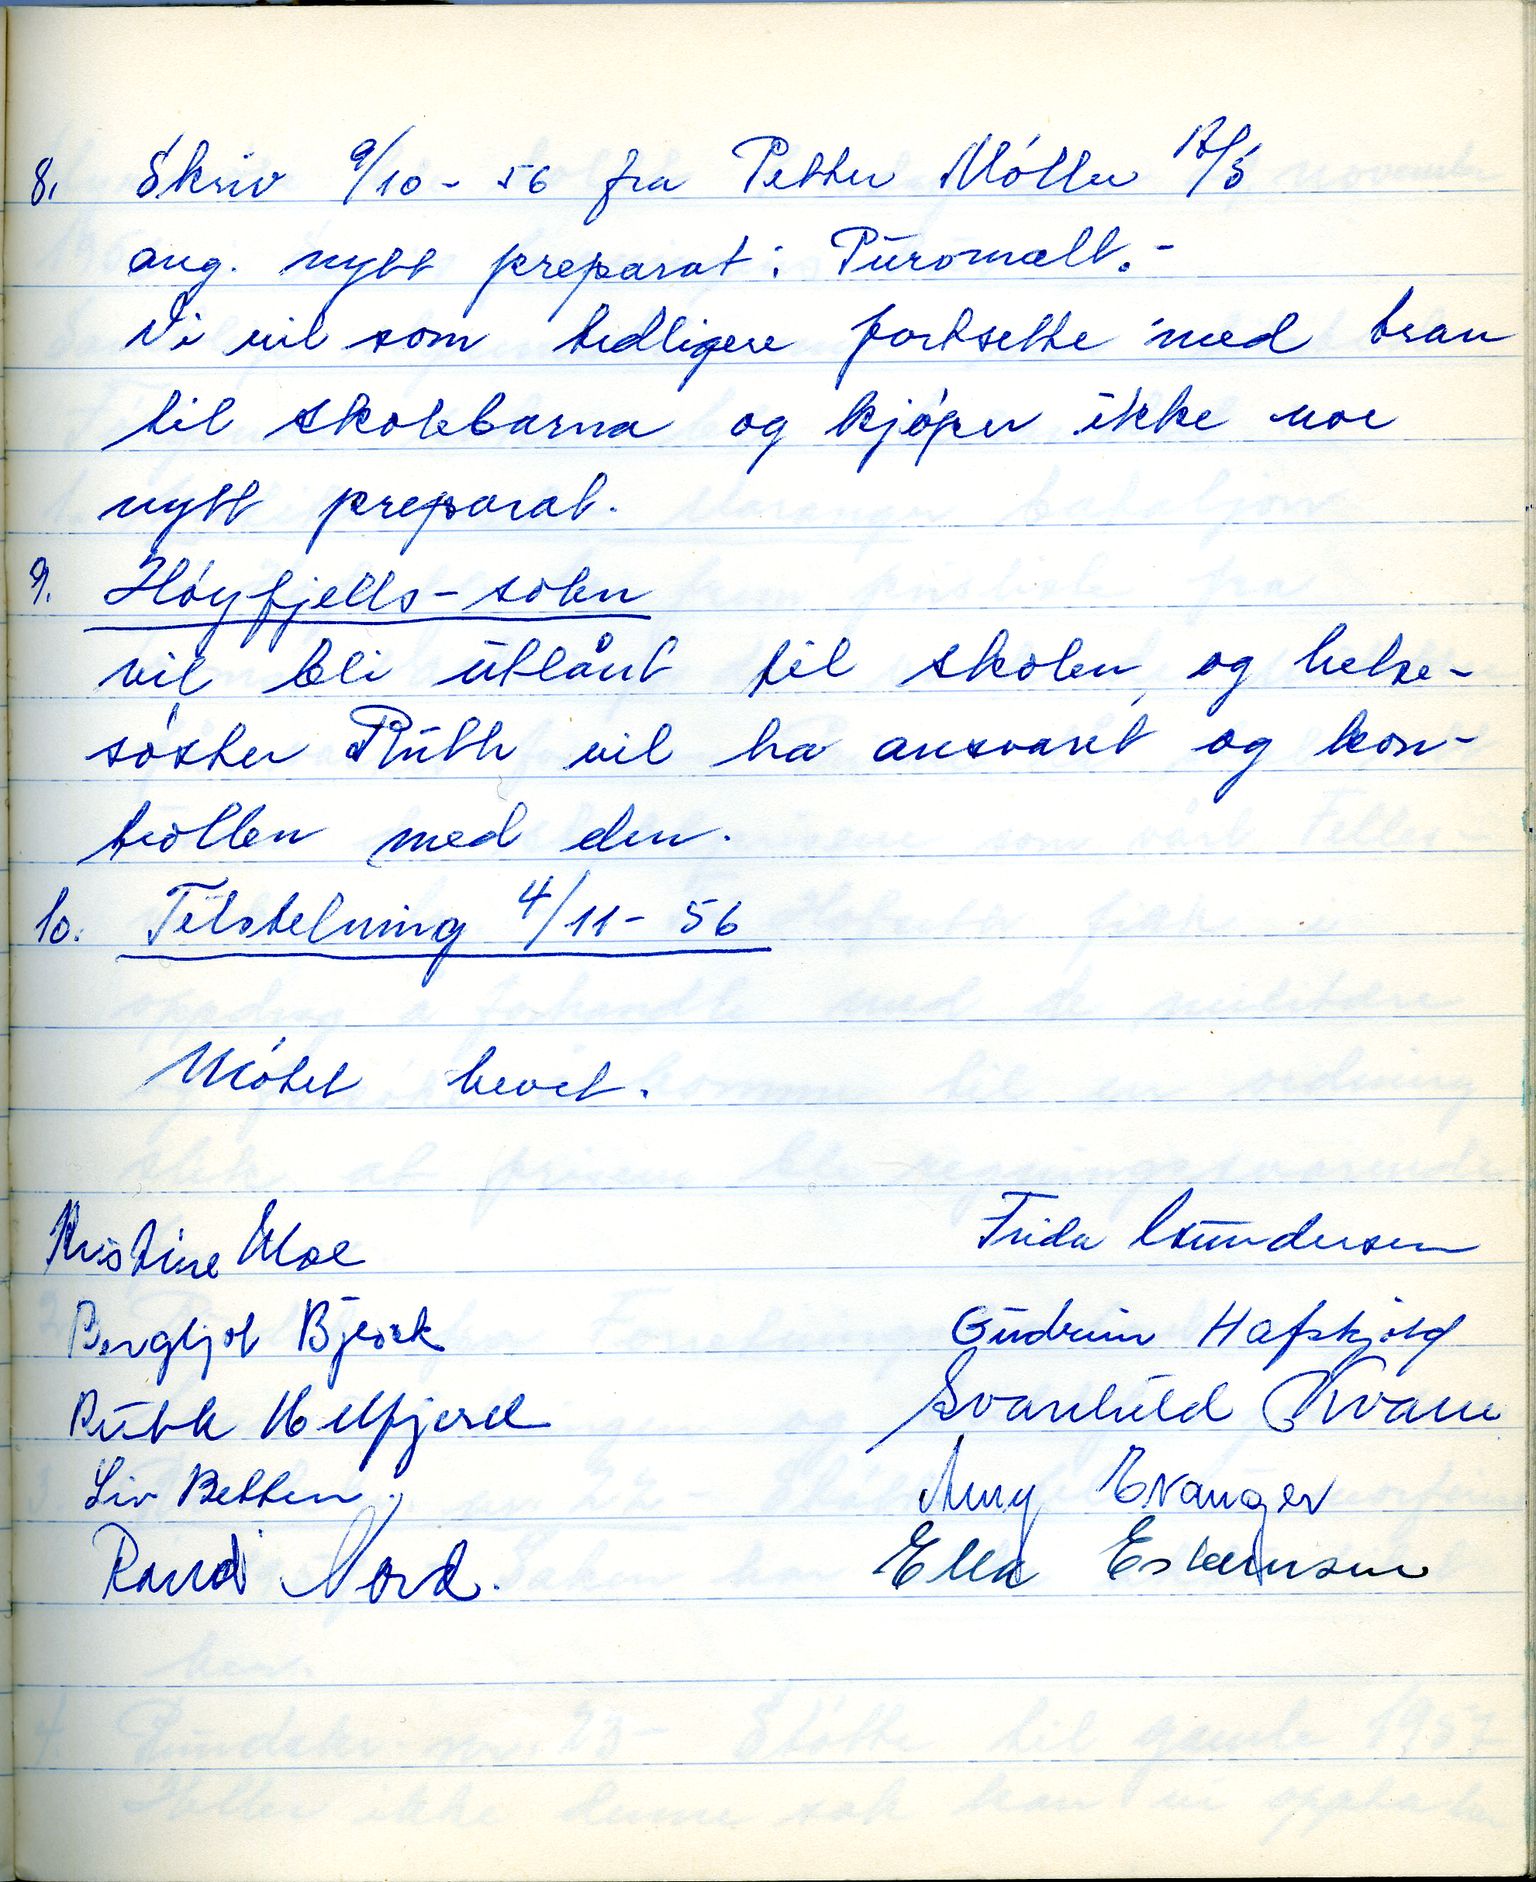 8. Skriv 9/10 - 56 fra Petter Möller A/S
ang. nytt preparat: Puromalt.-
Vi vil som tidligere fortsette med tran
til skolebarna og kjöper ikke noe
nytt preparat.
9. Höyfjells-solen
vil bli utlånt til skolen, og helse-
söster Ruth vil ha ansvaret og kon-
trollen med den.
10. Tilstelning 4/11 - 56
Mötet hevet.
Kristine Moe
Frida Gundersen
Bergljot Bjerk
Gudrun Hafskjold
Ruth Melfjord
Svanhild Kvam
Liv Betten.
Amy Evanger
Randi Nord.
Ella Estensen